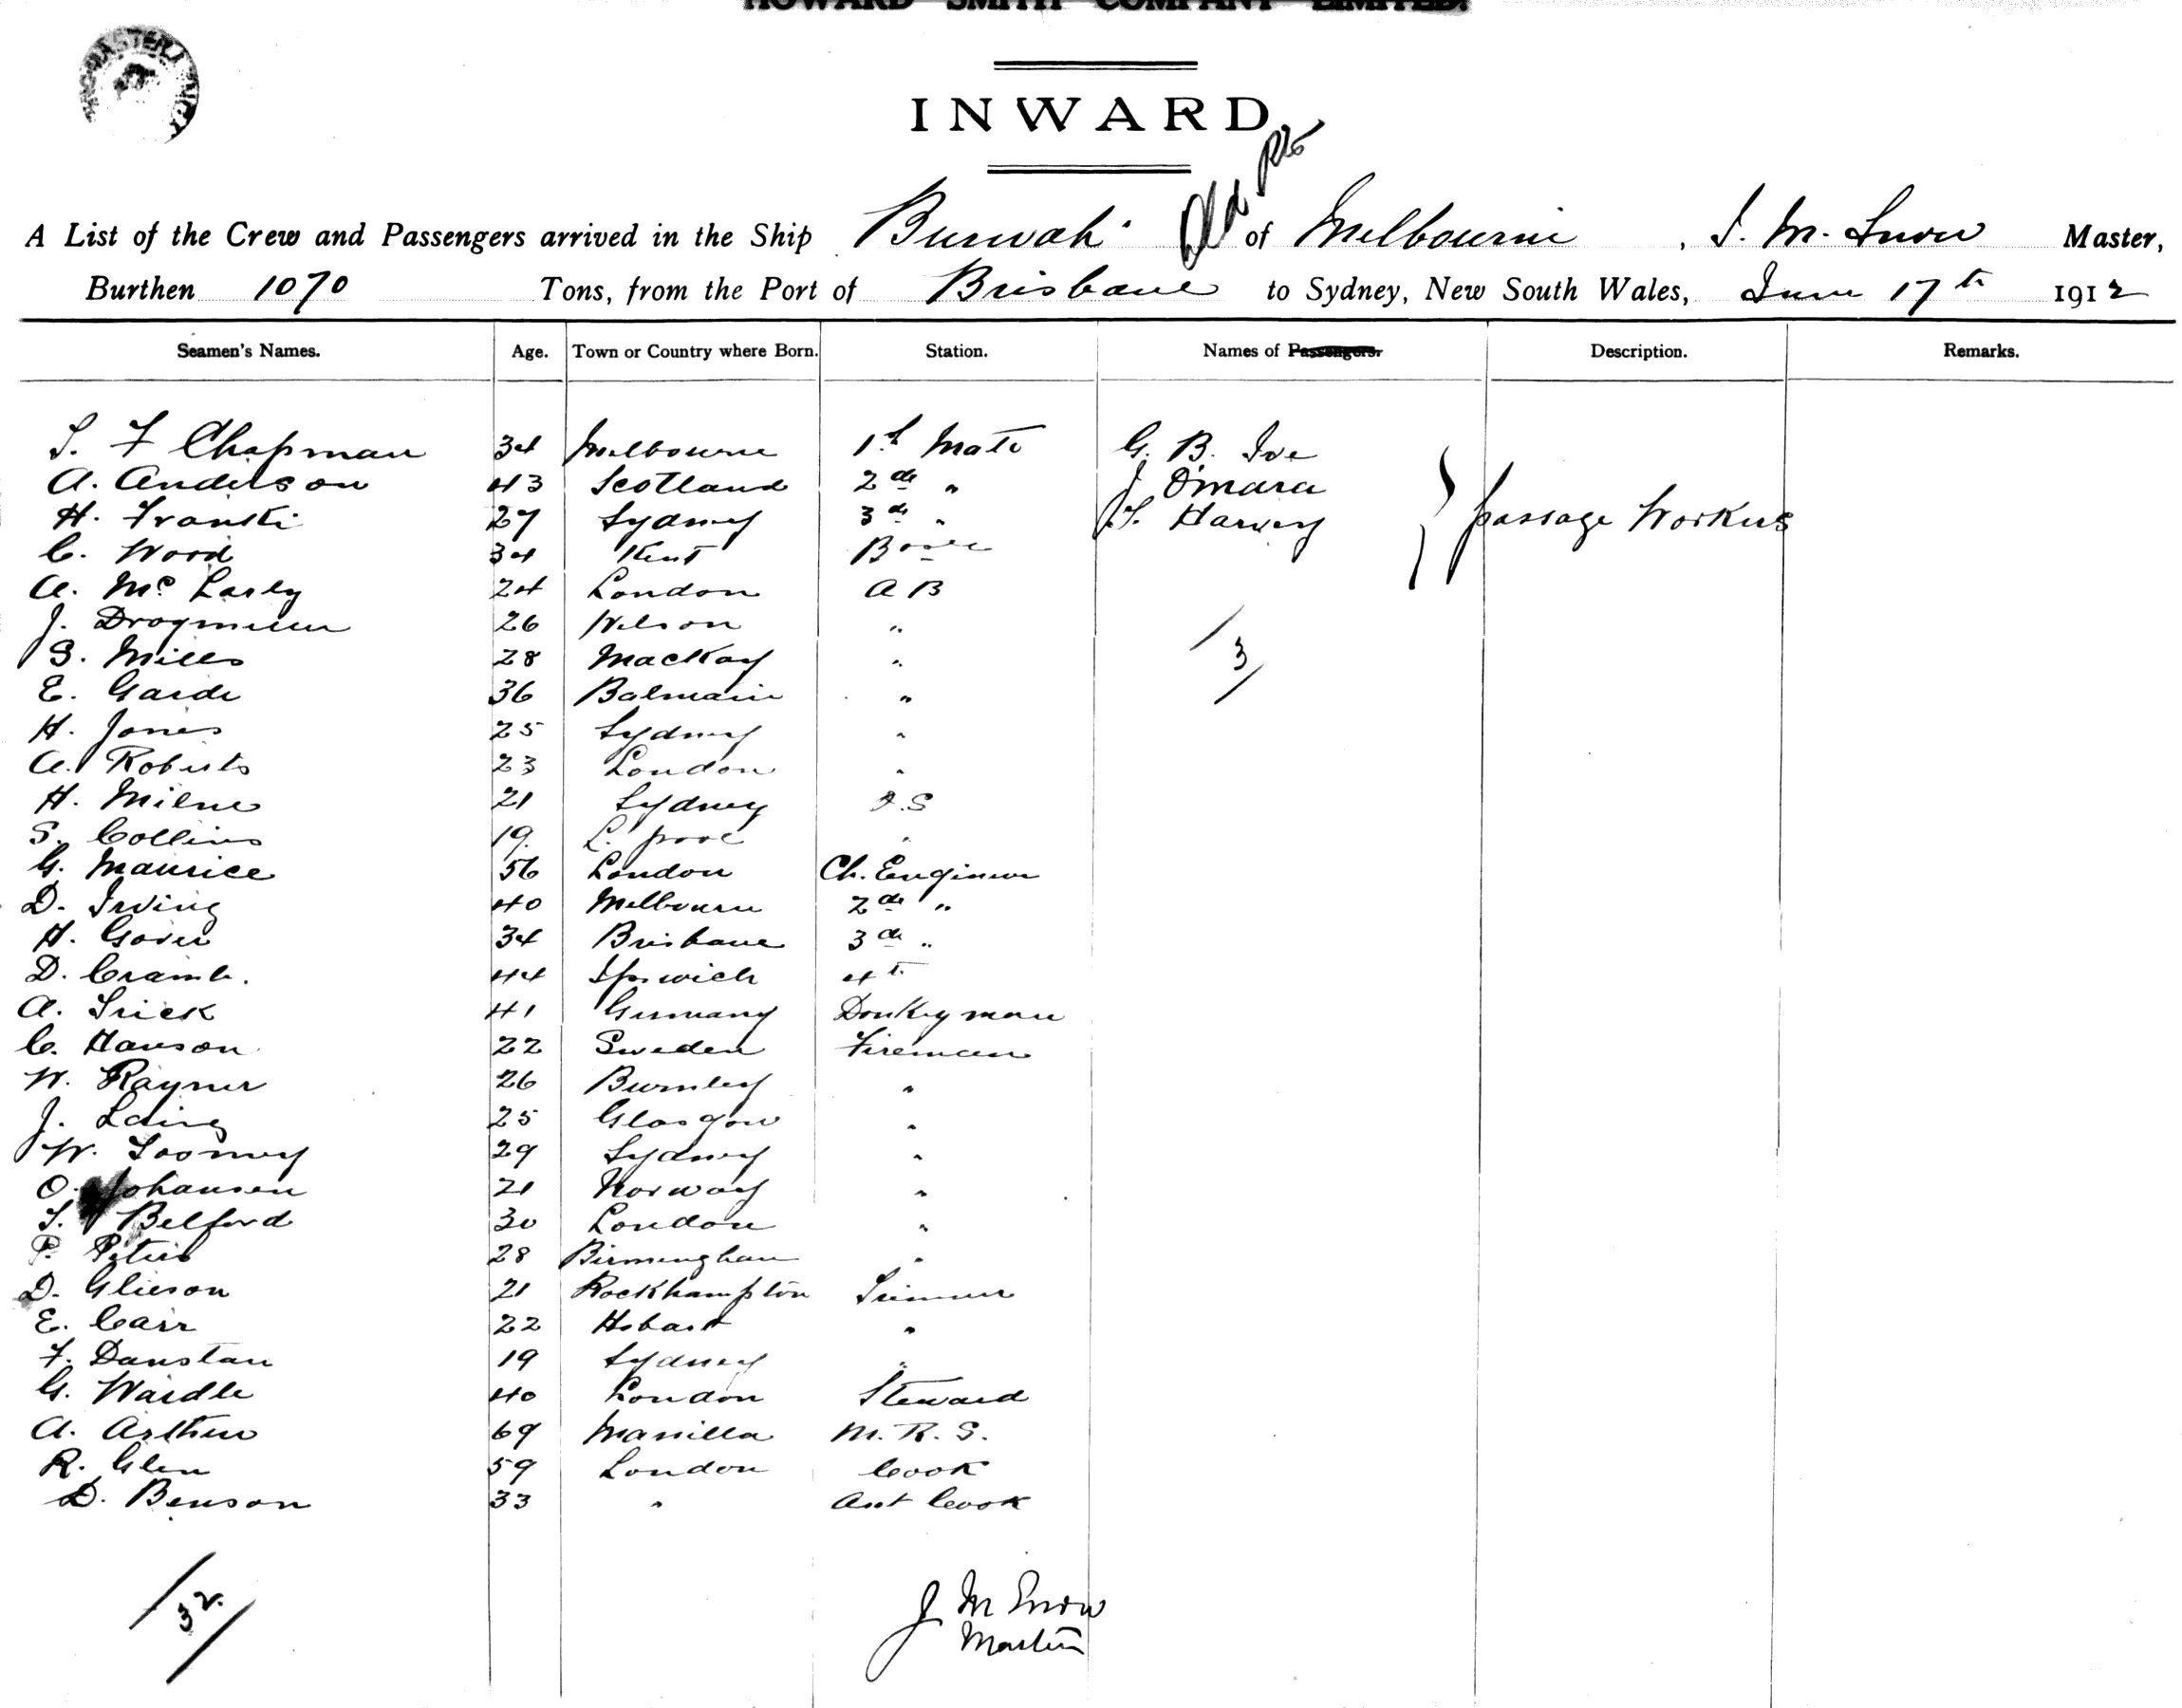 HOWARD SMITH COMPANY LIMITED.
INWARD.
A List of the Crew and Passengers arrived in the Ship Burwah of Melbourne, J. M. Snow Master,
Burthen 1070 Tons, from the Port of Brisbane to Sydney, New South Wales, June 17th 1912
Seamen's Names. Age. Town or Country where Born. Station. Names of Passengers. Description. Remarks.
S. F Chapman 34 Melbourne 1st Mate G. B. Ive
A. Anderson 43 Scotland 2nd " J O'Mara
H. Franki 27 Sydney 3rd " Harvey passage Workers
C. Wood 34 Kent
A. Mc 24 London A B
J. 26 "
S. Mills 28 Mackay " 3
E. Garde 36 Balmain "
H. Jones 25 Sydney "
A. Roberts 23 London "
H. Milne 21 Sydney O.S
S. Collins 19. L. pool "
G. Maurice 56 London Ch. Engineer
D. Irving 40 Melbourne 2nd "
H. Gover 34 Brisbane 3rd "
D. Cramb. 44 Ipswich 4th
A. 41 Germany Donkeyman
C. Hanson 22 Sweden Fireman
W. Rayner 26 Burnley "
J. Laing 25 Glasgow "
W. Toomey 29 Sydney "
O. Johansen 21 Norway "
Belford 30 London "
P. Peters 28 Birmingham "
D. Glieson 21 Rockhampton Trimmer
E. Carr 22 Hobart "
F. Dunstan 19 Sydney "
G. Wardle 40 London Steward
A. Arthur 69 Manilla M. R. S.
R. Glen 59 London Cook
D. Benson 33 " Asst Cook
32
J M Snow
Master